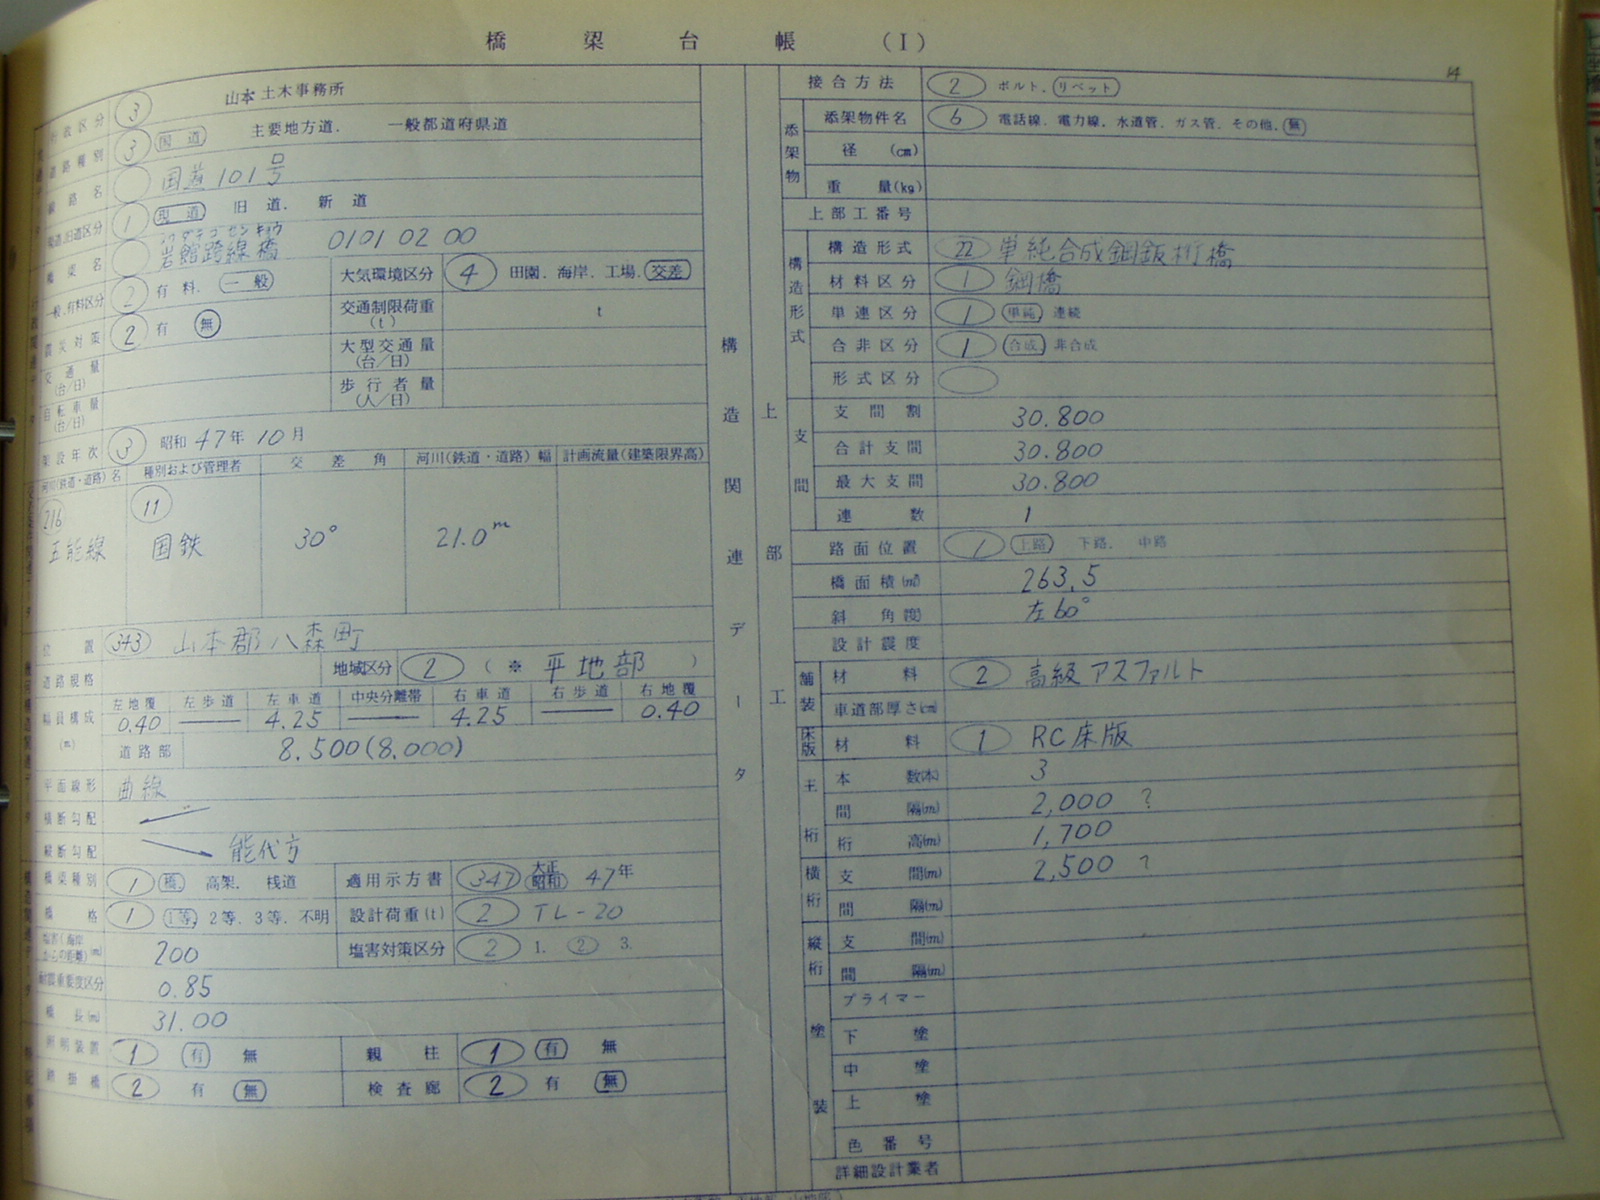 橋梁台帳(I)
14
行政区分 3 山本土木事務所
道路種別 3 国道 主要地方道. 一般都道府県道
路線名 国道101号
現道.旧道区分 1 現道 旧道. 新道
橋梁名 岩館跨線橋 0101 02 00
一般.有料区分 2 有料. 一般 大気環境区分 4 田園. 海岸. 工場. 交差
震災対策 2 有 無 交通制限荷重(t) t
交通量(台/日) 大型交通量(台/日)
自転車量(台/日) 歩行者量(人/日)
架設年次 3 昭和47年10月
河川(鉄道・道路)名 種別および管理者 交差角 河川(鉄道・道路)幅 計画流量(建築限界高)
216 11
五能線 国鉄 30° 21.0m
位置 343 山本郡八森町
道路規格 地域区分 2 (※ 平地部 )
幅員構成(m) 左地覆 左歩道 左車道 中央分離帯 右車道 右歩道 右地覆
0.40 — 4.25 — 4.25 — 0.40
道路部 8.500(8.000)
平面線形 曲線
横断勾配
縦断勾配 能代方
橋梁種別 1 橋. 高架. 桟道 適用示方書 347 大正 昭和 47年
橋格 1 1等, 2等, 3等, 不明 設計荷重(t) 2 TL-20
塩害(海岸からの距離)(m) 200 塩害対策区分 2 1. 2 3.
耐震重要度区分 0.85
橋長(m) 31.00
照明装置 1 有 無 親柱 1 有 無
2 有 無 検査廊 2 有 無
構造関連データ
上部工
接合方法 2 ボルト. リベット
添架物
添架物件名 6 電話線. 電力線. 水道管. ガス管. その他. 無
径(cm)
重量(kg)
上部工番号
構造形式
構造形式 22 単純合成鋼鈑桁橋
材料区分 1 鋼橋
単連区分 1 単純 連続
合非区分 1 合成 非合成
形式区分
支間
支間割 30.800
合計支間 30.800
最大支間 30.800
連数 1
路面位置 1 上路 下路. 中路
橋面積(㎡) 263.5
斜角(度) 左60°
設計震度
舗装
材料 2 高級アスファルト
車道部厚さ(cm)
床版 材料 1 RC床版
主桁
本数(本) 3
間隔(m) 2,000 ?
桁高(m) 1,700
横桁
支間(m) 2,500 ?
間隔(m)
縦桁
支間(m)
間隔(m)
塗装
プライマー
下塗
中塗
上塗
色番号
詳細設計業者